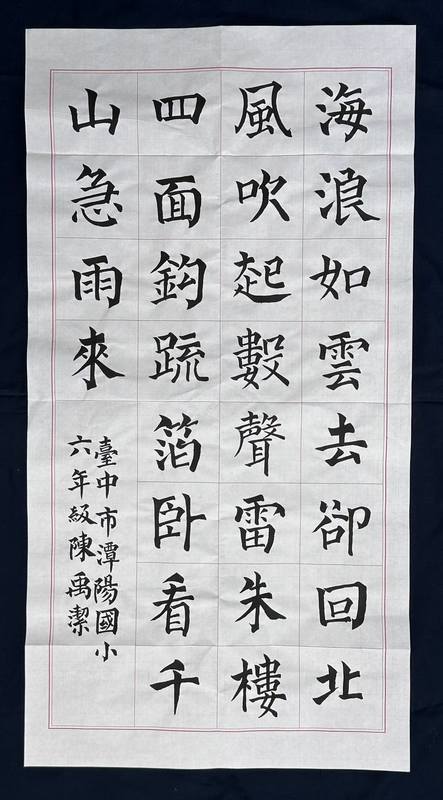 海浪如雲去卻回北
風吹起數聲雷朱樓
四面鈎疏箔卧看千
山急雨來
臺中市潭陽國小
六年級陳禹潔